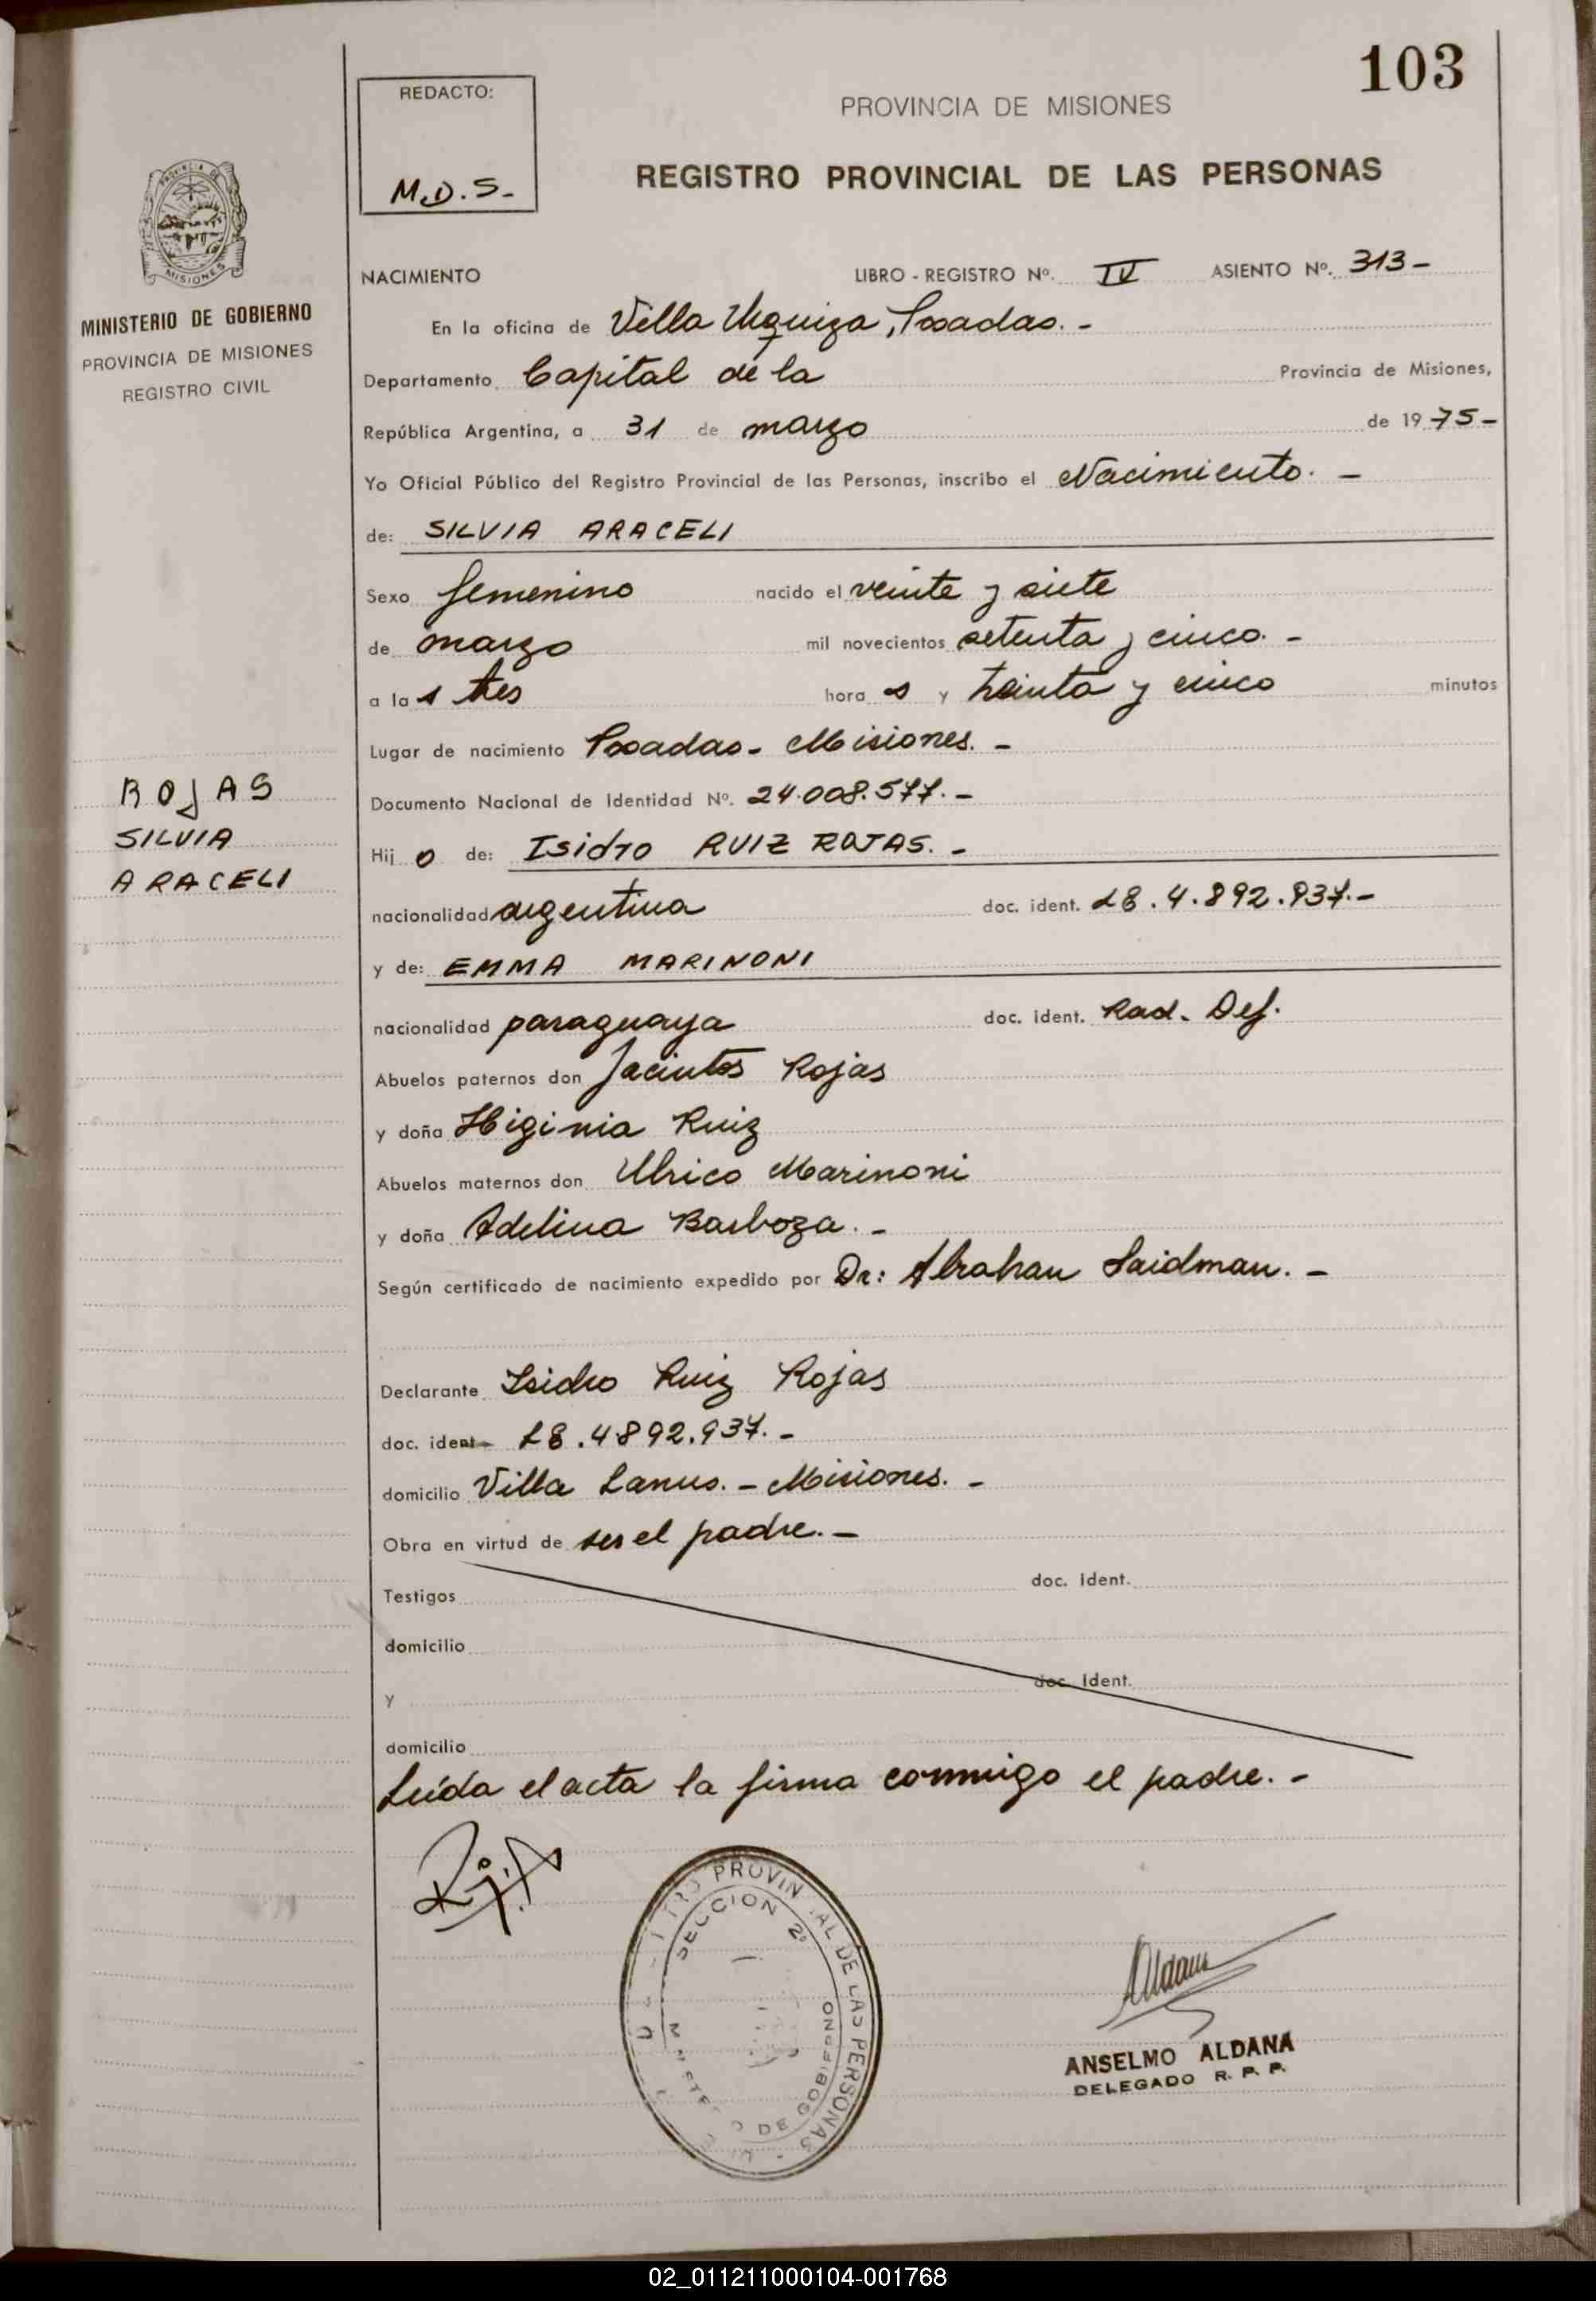 103
REDACTO:
M.D.S-
PROVINCIA DE MISIONES
REGISTRO PROVINCIAL DE LAS PERSONAS
MISIONES
MINISTERIO DE GOBIERNO
PROVINCIA DE MISIONES
REGISTRO CIVIL
NACIMIENTO LIBRO - REGISTRO Nº. IV ASIENTO Nº. 313-
En la oficina de Villa Urquiza, Posadas. -
Departamento Capital de la Provincia de Misiones,
República Argentina, a 31 de marzo de 1975-
Yo Oficial Público del Registro Provincial de las Personas, inscribo el Nacimiento. -
de: SILVIA ARACELI
Sexo femenino nacido el veinte y siete
de marzo mil novecientos setenta y cinco. -
a las tres horas y treinta y cinco minutos
Lugar de nacimiento Posadas- Misiones. -
Documento Nacional de Identidad Nº. 24.008.577.-
ROJAS
SILVIA
ARACELI
Hijo de: Isidro RUIZ ROJAS. -
nacionalidad argentina doc. ident. L8.4.892.937.-
y de: EMMA MARINONI
nacionalidad paraguaya doc. ident. Rad. Def.
Abuelos paternos don Jacintos Rojas
y doña Higinia Ruiz
Abuelos maternos don Ulrico Marinoni
y doña Adelina Barboza. -
Según certificado de nacimiento expedido por Dr: Abrahan Saidman. -
Declarante Isidro Ruiz Rojas
doc. ident- L8.4892.937. -
domicilio Villa Lanus. - Misiones. -
Obra en virtud de ser el padre. -
Testigos doc. Ident.
domicilio
y doc. Ident.
domicilio
Leída el acta la firma conmigo el padre. -
PROVIN AL DE LAS PERSONAS
SECCION 2ª
DE GOBIERNO
Aldana
ANSELMO ALDANA
DELEGADO R. P. P.
02_011211000104-001768